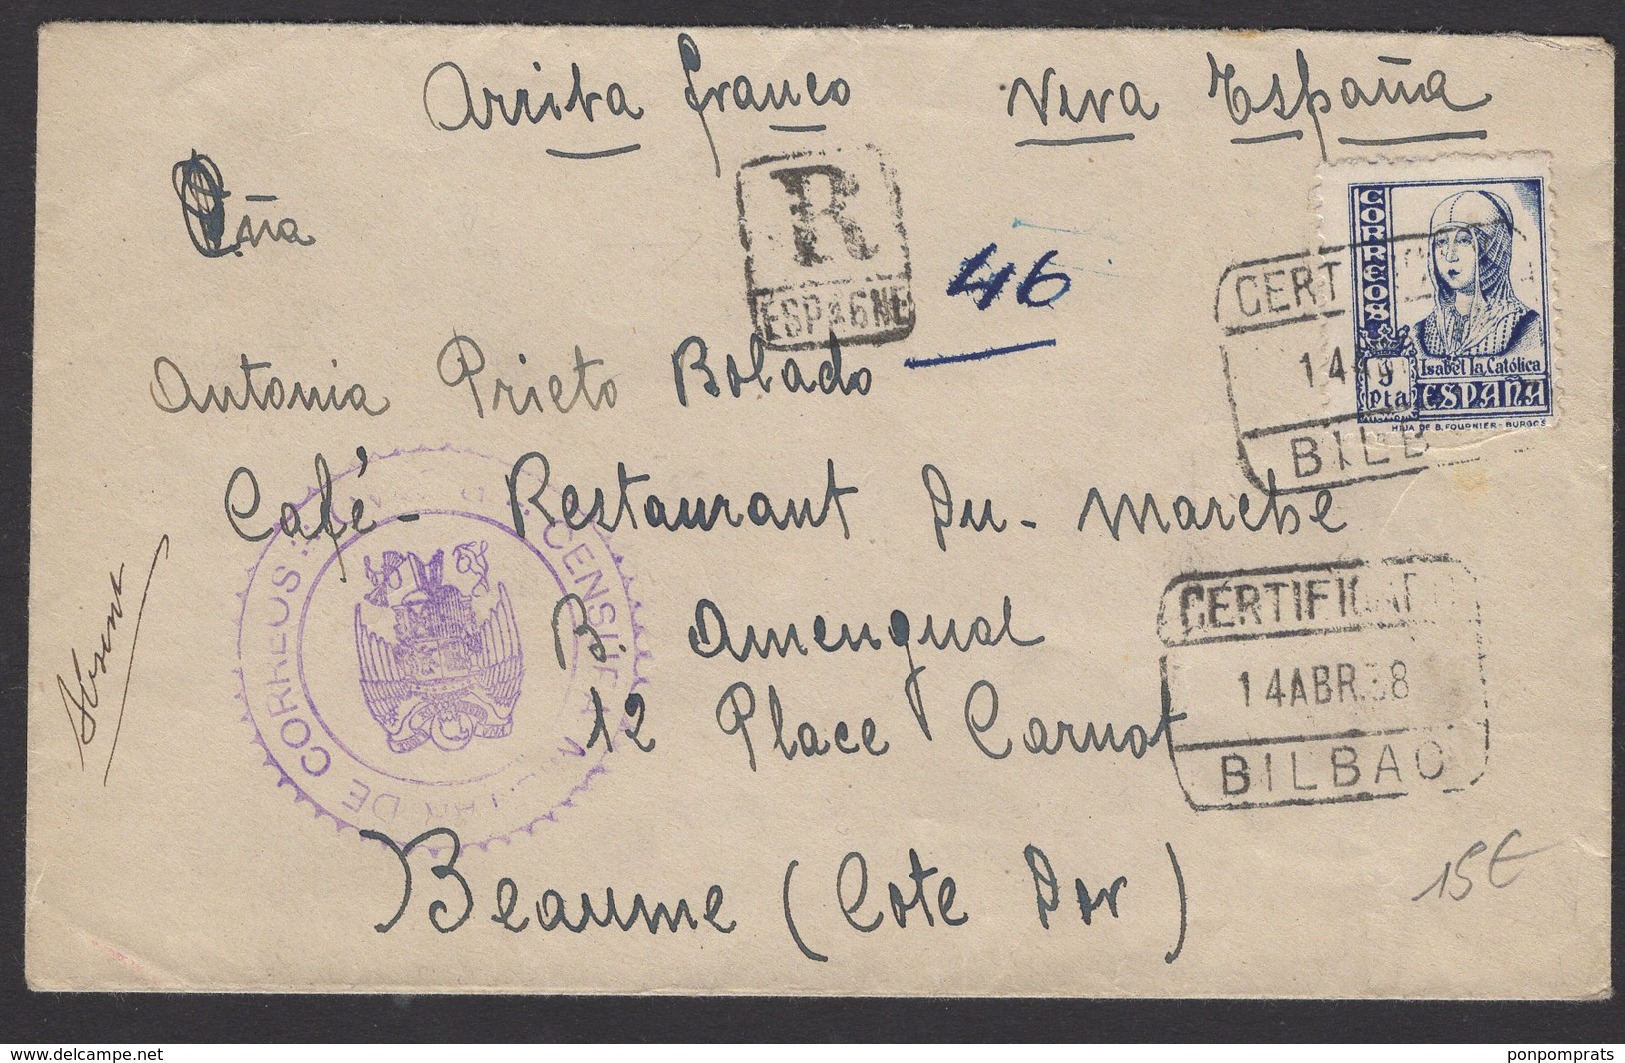 Arriba franco Viva España
R
ESPAGNE
46
ña
CORREOS
Isabel la Católica
pta
ESPAÑA
HIJA DE B. FOURNIER - BURGOS
CERT
14
BILB
Antonia Prieto Bolado
Café - Restaurant Du - Marche
B. Amengual
12 Place Carnot
Beaume (Cote Dor)
Absent
CENSURA
DE CORREOS
CERTIFICADO
14 ABR.38
BILBAO
15€
www.delcampe.net
ponpomprats